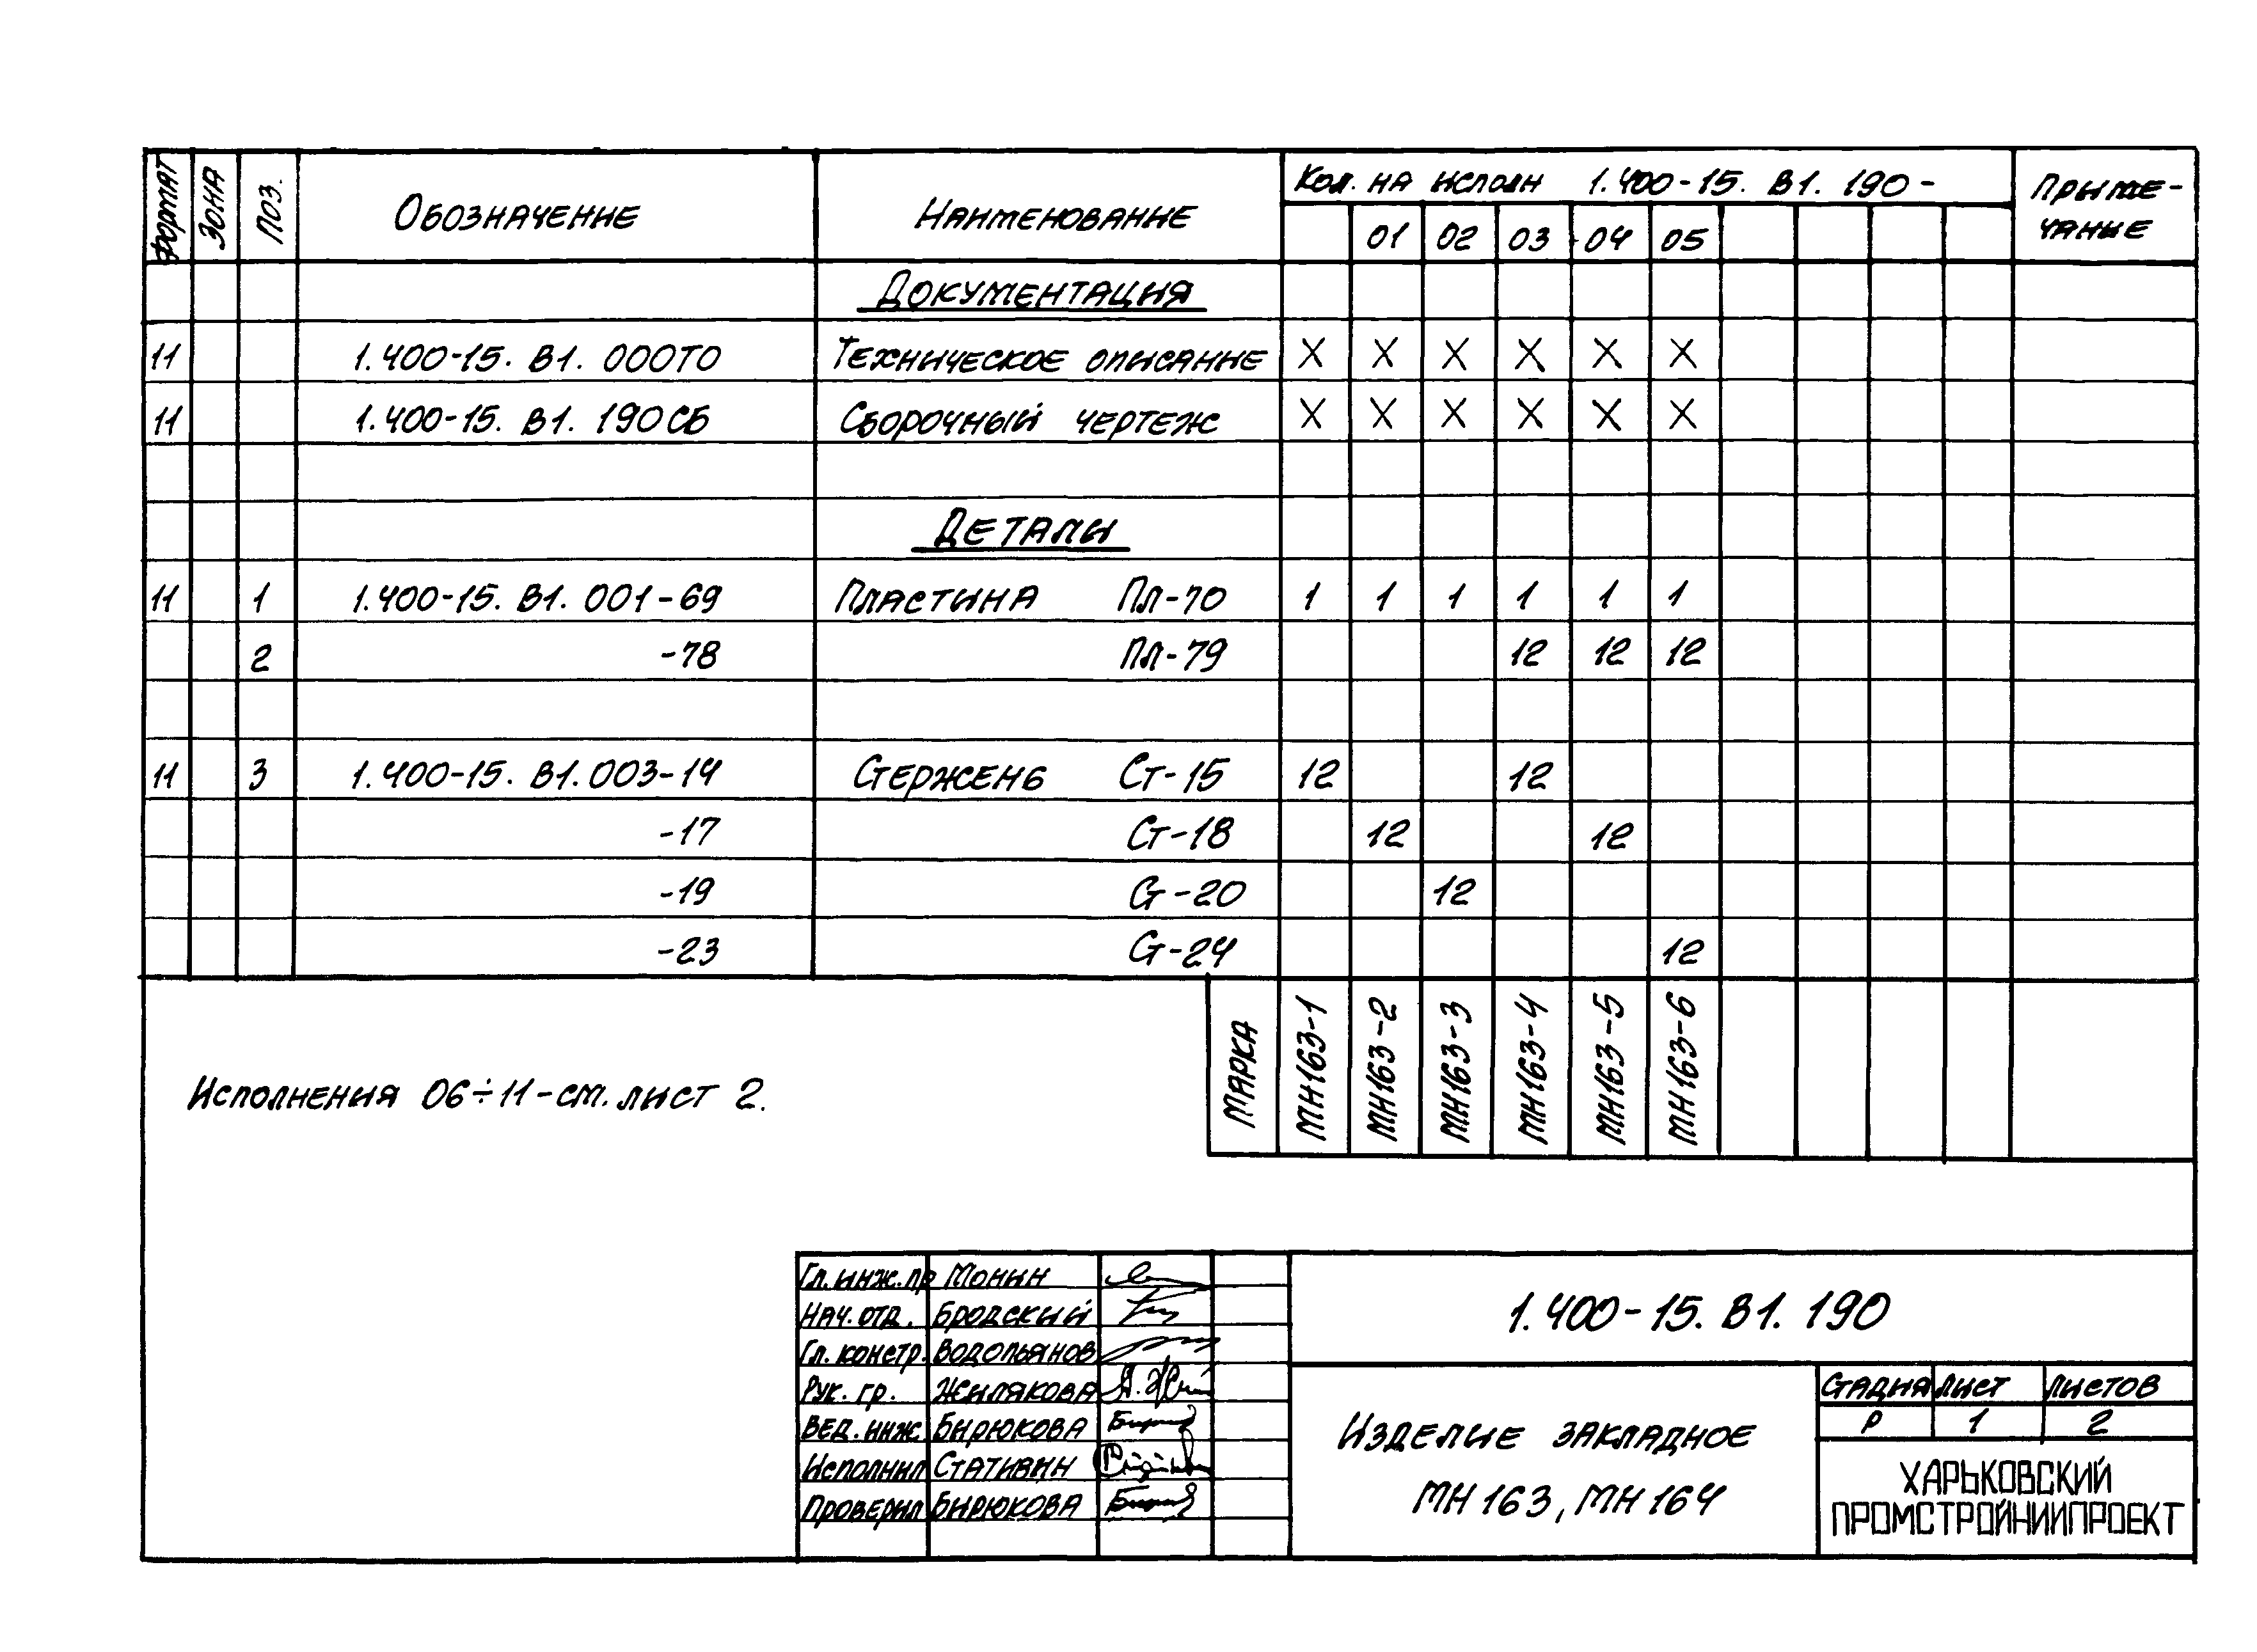 Формат Зона Поз. Обозначение Наименование Кол. на исполн 1.400-15. В1. 190- Примечание
01 02 03 04 05
Документация
11 1.400-15. В1. 000ТО Техническое описание X X X X X X
11 1.400-15. В1. 190СБ Сборочный чертеж X X X X X X
Детали
11 1 1.400-15. В1. 001-69 Пластина Пл-70 1 1 1 1 1 1
2 -78 Пл-79 12 12 12
11 3 1.400-15. В1.003-14 Стержень Ст-15 12 12
-17 Ст-18 12 12
-19 Ст-20 12
-23 Ст-24 12
Марка МН163-1 МН163-2 МН163-3 МН163-4 МН163-5 МН163-6
Исполнения 06÷11-см. лист 2.
Гл. инж. пр Монин
Нач. отд. Бродский
Гл. констр. Водопьянов
Рук. гр. Жилякова
Вед. инж. Бирюкова
Исполнил Стативин
Проверил Бирюкова
1.400-15. В1. 190
Изделие закладное
МН163, МН164
Стадия Лист Листов
Р 1 2
ХАРЬКОВСКИЙ
ПРОМСТРОЙНИИПРОЕКТ